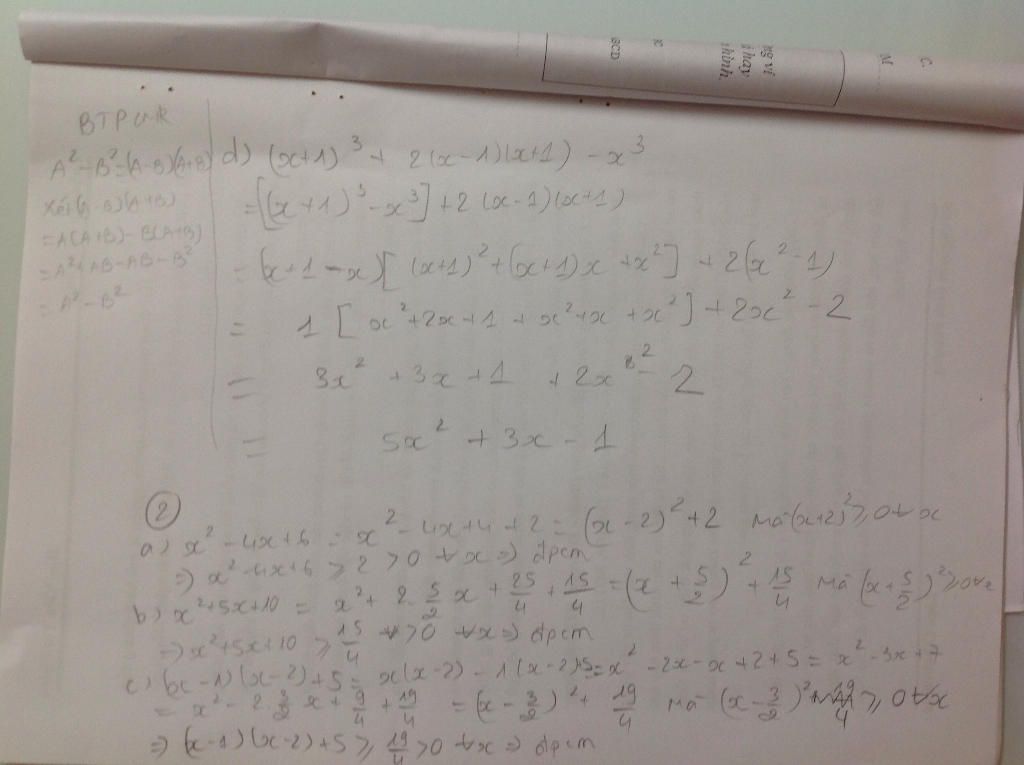 C.
M
ng vi
i hay
hình.
BCD
BTP
A² - B² = (A-B)(A+B)
Xét (A-B)(A+B)
= A(A+B) - B(A+B)
= A² + AB - AB - B²
= A² - B²
d) (x+1)³ + 2(x-1)(x+1) - x³
= [(x+1)³ - x³] + 2(x-1)(x+1)
= (x+1-x)[(x+1)² + (x+1)x + x²] + 2(x²-1)
= 1[x²+2x+1+x²+x+x²] + 2x² - 2
= 3x² + 3x + 1 + 2x² - 2
= 5x² + 3x - 1
②
a) x² - 4x + 6 = x² - 4x + 4 + 2 = (x-2)² + 2 mà (x+2)² ⩾ 0 ∀x
⇒ x² - 4x + 6 ⩾ 2 > 0 ∀x ⇒ đpcm
b) x² + 5x + 10 = x² + 2.5/2 x + 25/4 + 15/4 = (x + 5/2)² + 15/4 mà (x + 5/2)² ⩾ 0 ∀x
⇒ x² + 5x + 10 ⩾ 15/4 > 0 ∀x ⇒ đpcm
c) (x-1)(x-2) + 5 = x(x-2) - 1(x-2) + 5 = x² - 2x - x + 2 + 5 = x² - 3x + 7
= x² - 2.3/2 x + 9/4 + 19/4 = (x - 3/2)² + 19/4 mà (x - 3/2)² ⩾ 0 ∀x
⇒ (x-1)(x-2) + 5 ⩾ 19/4 > 0 ∀x ⇒ đpcm